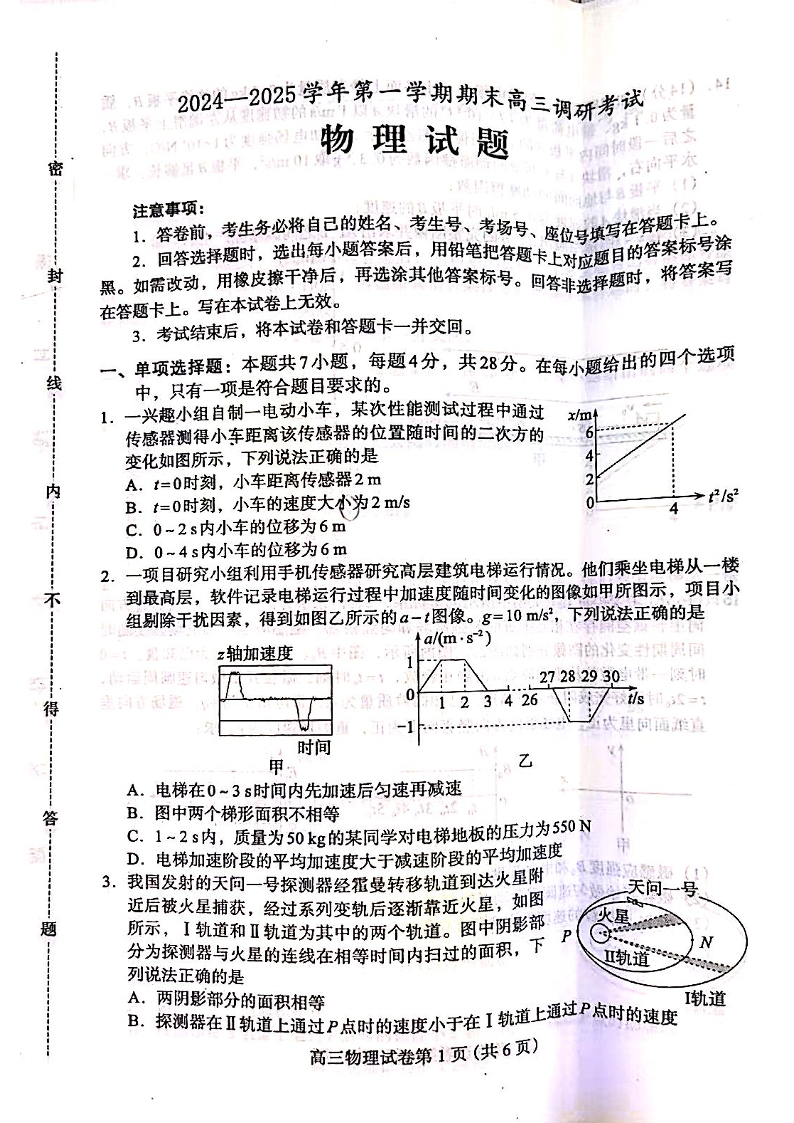 2024—2025学年第一学期期末高三调研考试
物理试题
注意事项：
1．答卷前，考生务必将自己的姓名、考生号、考场号、座位号填写在答题卡上。
2．回答选择题时，选出每小题答案后，用铅笔把答题卡上对应题目的答案标号涂
黑。如需改动，用橡皮擦干净后，再选涂其他答案标号。回答非选择题时，将答案写
在答题卡上。写在本试卷上无效。
3．考试结束后，将本试卷和答题卡一并交回。
一、单项选择题：本题共7小题，每题4分，共28分。在每小题给出的四个选项
中，只有一项是符合题目要求的。
1．一兴趣小组自制一电动小车，某次性能测试过程中通过
传感器测得小车距离该传感器的位置随时间的二次方的
变化如图所示，下列说法正确的是
A．t=0时刻，小车距离传感器2 m
B．t=0时刻，小车的速度大小为2 m/s
C．0~2 s内小车的位移为6 m
D．0~4 s内小车的位移为6 m
x/m
6
4
2
0
4
t²/s²
2．一项目研究小组利用手机传感器研究高层建筑电梯运行情况。他们乘坐电梯从一楼
到最高层，软件记录电梯运行过程中加速度随时间变化的图像如甲所图示，项目小
组剔除干扰因素，得到如图乙所示的a－t图像。g=10 m/s²，下列说法正确的是
z轴加速度
时间
甲
a/(m·s⁻²)
1
0
−1
1 2 3 4 26
27 28 29 30
t/s
乙
A．电梯在0~3 s时间内先加速后匀速再减速
B．图中两个梯形面积不相等
C．1~2 s内，质量为50 kg的某同学对电梯地板的压力为550 N
D．电梯加速阶段的平均加速度大于减速阶段的平均加速度
3．我国发射的天问一号探测器经霍曼转移轨道到达火星附
近后被火星捕获，经过系列变轨后逐渐靠近火星，如图
所示，Ⅰ轨道和Ⅱ轨道为其中的两个轨道。图中阴影部
分为探测器与火星的连线在相等时间内扫过的面积，下
列说法正确的是
天问一号
火星
P
N
Ⅱ轨道
Ⅰ轨道
A．两阴影部分的面积相等
B．探测器在Ⅱ轨道上通过P点时的速度小于在Ⅰ轨道上通过P点时的速度
高三物理试卷第 1 页（共 6 页）
密
封
线
内
不
得
答
题